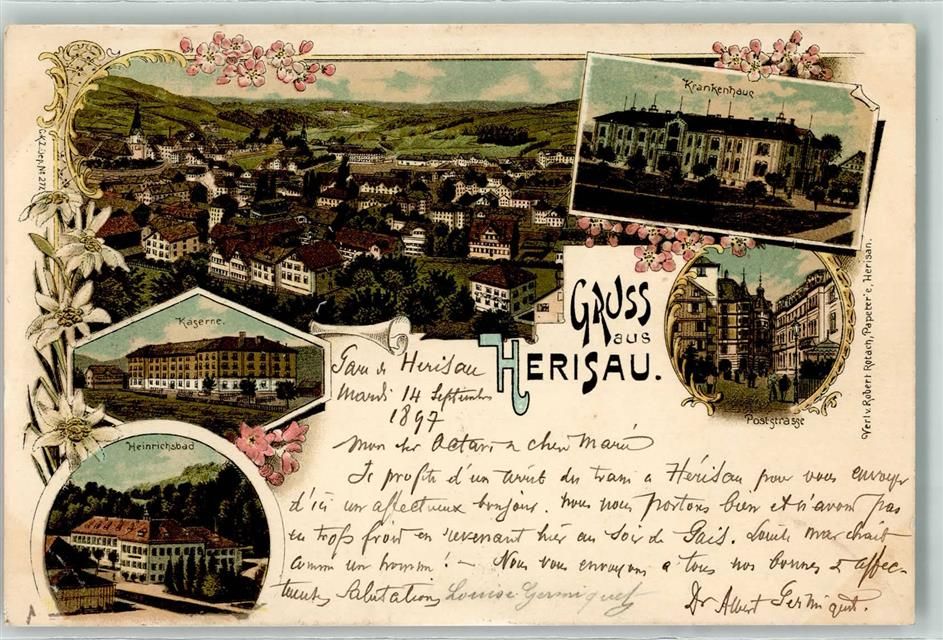 Krankenhaus
GRUSS
aus
HERISAU.
Kaserne.
Poststrasse
Heinrichsbad
Verl. v. Robert Rotach, Papeterie, Herisau.
Gare de Herisau
Mardi 14 Septembre
1897
Mon cher Octave & chère Marie
Je profite d'un arrêt du train à Hérisau pour vous envoyer
d'ici un affectueux bonjour. Nous nous portons bien et n'avons pas
eu trop froid en revenant hier au soir de Gais. Louise marchait
comme un homme! – Nous vous envoyons à tous nos bonnes & affec-
tueuses salutations Louise Germiquet
Dr Albert Germiquet.